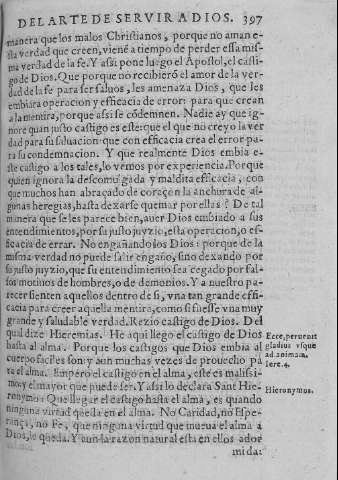 DEL ARTE DE SERVIR A DIOS. 397
manera que los malos Christianos, porque no aman e-
sta verdad que creen, viené a tiempo de perder essa mis-
ma verdad de la fe. Y assi pone luego el Apostol, el casti-
go de Dios. Que porque no recibieró el amor de la ver-
dad de la fe para ser saluos, les amenaza Dios, que les
embiara operacion y efficacia de error: para que crean
a la mentira, porque assi se códemnen. Nadie ay que ig-
nore quan justo castigo es este: que el que no creyo la ver
dad para su saluacion que con efficacia crea el error pa-
ra su condemnacion. Y que realmente Dios embia e-
ste castigo a los tales, lo vemos por experiencia. Porque
quien ignora la descomulgada y maldita efficacia, con
que muchos han abraçado de coraçon la anchura de al-
gunas heregias, hasta dexarse quemar por ellas? De tal
manera que se les parece bien, auer Dios embiado a sus
entendimientos, por su justo juyzio, esta operacion, o ef-
ficacia de errar. No engañando los Dios: porque de la
misma verdad no puede salir engaño, sino dexando por
su justo juyzio, que su entendimiento sea cegado por fal-
sos motiuos de hombres, o de demonios. Y a nuestro pa-
recer sienten aquellos dentro de si, vna tan grande effi-
cacia para creer aquella mentira, como si fuesse vna muy
grande y saludable verdad. Rezio castigo de Dios. Del
qual dize Hieremias. He aqui llego el castigo de Dios
hasta al alma. Porque los castigos que Dios embia al
cuerpo faciles son: y aun muchas vezes de prouecho pa
ra el alma. Empero el castigo en el alma, este es malissi-
mo, y el mayor que puede ser. Y assi lo declara Sant Hie-
ronymo: Que llegar el castigo hasta el alma, es quando
ninguna virtud queda en el alma. No Caridad, no Espe-
rança, no Fe, que ninguna virtud que mueua el alma a
Dios, le queda. Y aun la razon natural esta en ellos ador
mida:
Ecce, peruenit
gladius vsque
ad animam.
Iere. 4.
Hieronymos.